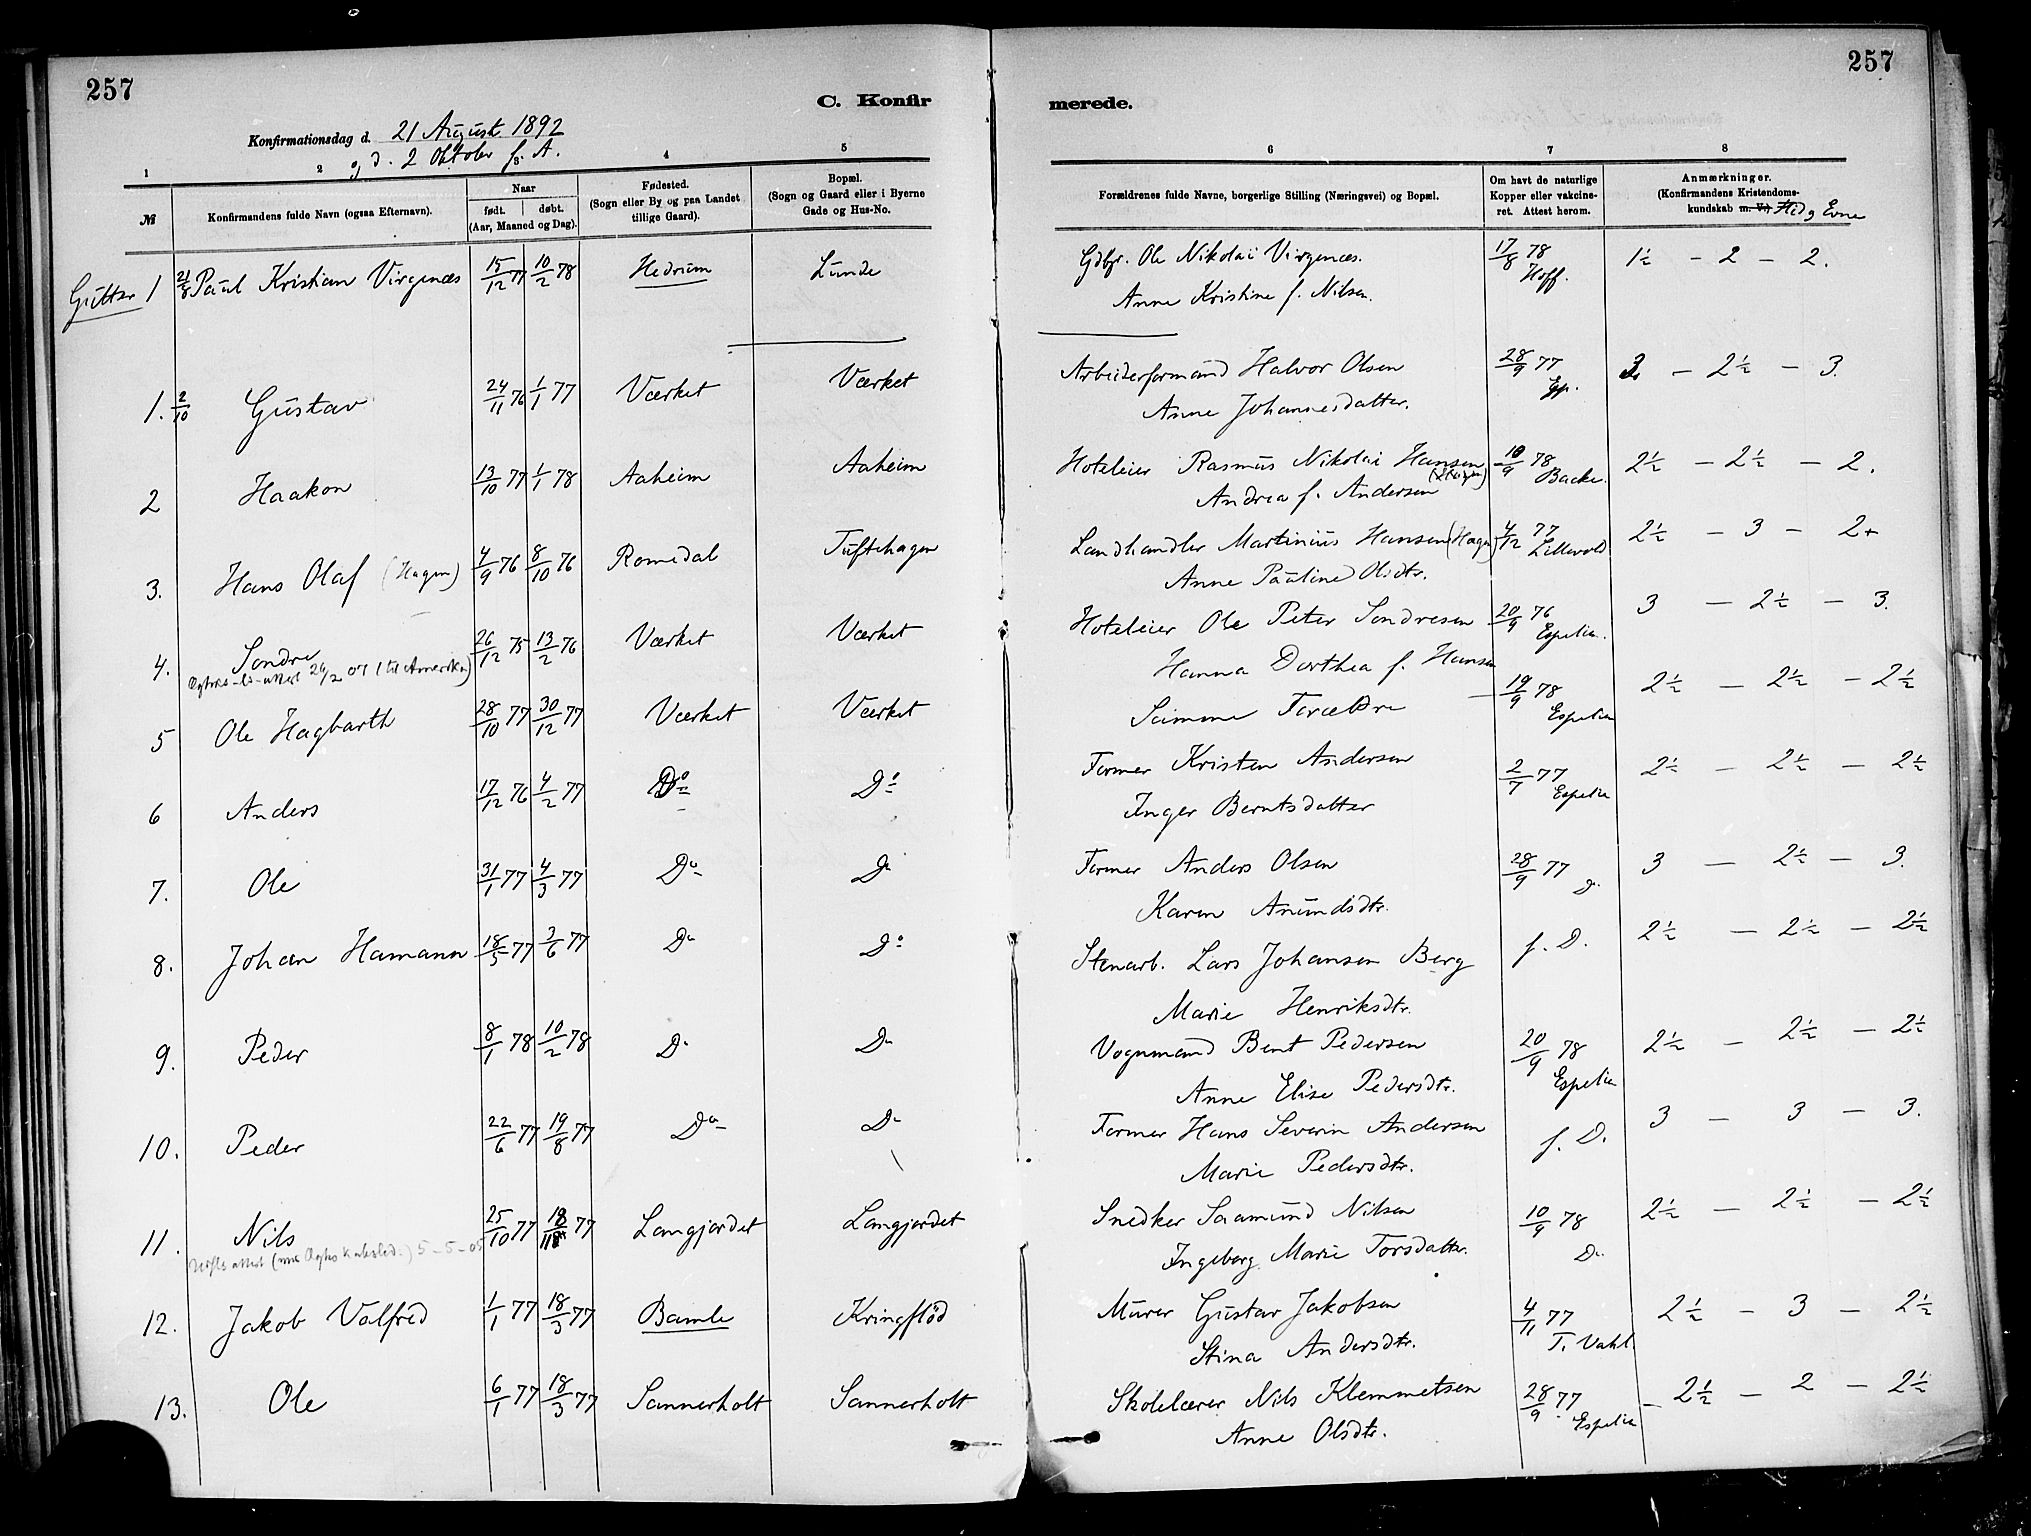 257
257
C. Konfir
merede.
Konfirmationsdag d. 21 August 1892
og d. 2 Oktober s. A.
1 2 3 4 5 6 7 8
№
Konfirmandens fulde Navn (ogsaa Efternavn).
Naar
født. døbt.
(Aar, Maaned og Dag).
Fødested.
(Sogn eller By og paa Landet
tillige Gaard).
Bopæl.
(Sogn og Gaard eller i Byerne
Gade og Hus-No.
Forældrenes fulde Navne, borgerlige Stilling (Næringsvei) og Bopæl.
Om havt de naturlige
Kopper eller vakcine-
ret. Attest herom.
Anmærkninger.
(Konfirmandens Kristendoms-
kundskab m. V.) Flid og Evne
Gutter 1 21/8 Paul Kristian Virgenæs 15/12 77 10/2 78 Hedrum Lunde Gdbr. Ole Nikolai Virgenæs. 17/8 78 1½ - 2 - 2.
Anne Kristine f. Nilsen. Hoff.
1. 2/10 Gustav 24/11 76 1/1 77 Værket Værket Arbeiderformand Halvor Olsen 28/9 77 3 - 2½ - 3.
Anne Johannesdatter. Esp.
2 Haakon 13/10 77 1/1 78 Aaheim Aaheim Hoteleier Rasmus Nikolai Hansen 10/9 78 2½ - 2½ - 2.
Andrea f. Andersen Backe.
3. Hans Olaf (Hagen) 4/9 76 8/10 76 Romedal Tuftehagen Landhandler Martinius Hansen (Hagen) 4/12 77 2½ - 3 - 2+
Anne Pauline Olsdtr. Lillevold
4. Sondre 26/12 75 13/2 76 Værket Værket Hoteleier Ole Peter Sondresen 20/9 76 3 - 2½ - 3.
attest 26/2 07 (til Amerika) Hanna Dorthea f. Hansen Espelien.
5 Ole Hagbarth 28/10 77 30/12 77 Værket Værket Samme Forældre - 19/9 78 2½ - 2½ - 2½
Espelien
6 Anders 17/12 76 4/2 77 Do Do Former Kristen Andersen 2/7 77 2½ - 2½ - 2½
Inger Berntsdatter Espelien
7. Ole 31/1 77 4/3 77 Do Do Former Anders Olsen 28/9 77 3 - 2½ - 3.
Karen Amundsdtr. Do
8. Johan Hamann 18/5 77 3/6 77 Do Do Stenarb. Lars Johansen Berg f. D. 2½ - 2½ - 2½
Marie Henriksdtr.
9. Peder 8/1 78 10/2 78 Do Do Vognmand Bent Pedersen 20/9 78 2½ - 2½ - 2½
Anne Elise Pedersdtr. Espelien
10. Peder 22/6 77 19/8 77 Do Do Former Hans Severin Andersen f. D. 3 - 3 - 3.
Marie Pedersdtr.
11. Nils 25/10 77 18/11 77 Langjordet Langjordet Snedker Saamund Nilsen 10/9 78 2½ - 2½ - 2½
attest 5-5-05 Ingeborg Marie Torsdatter. Do
12. Jakob Valfred 1/1 77 18/3 77 Bamle Kringflöd Murer Gustav Jakobsen 4/11 77 2½ - 3 - 2½
Stina Andersdtr. T. Vahl.
13. Ole 6/1 77 18/3 77 Sannerholt Sannerholt Skolelærer Nils Klemmetsen 28/9 77 - 2½ - 2 - 2½
Anne Olsdtr. Espelien